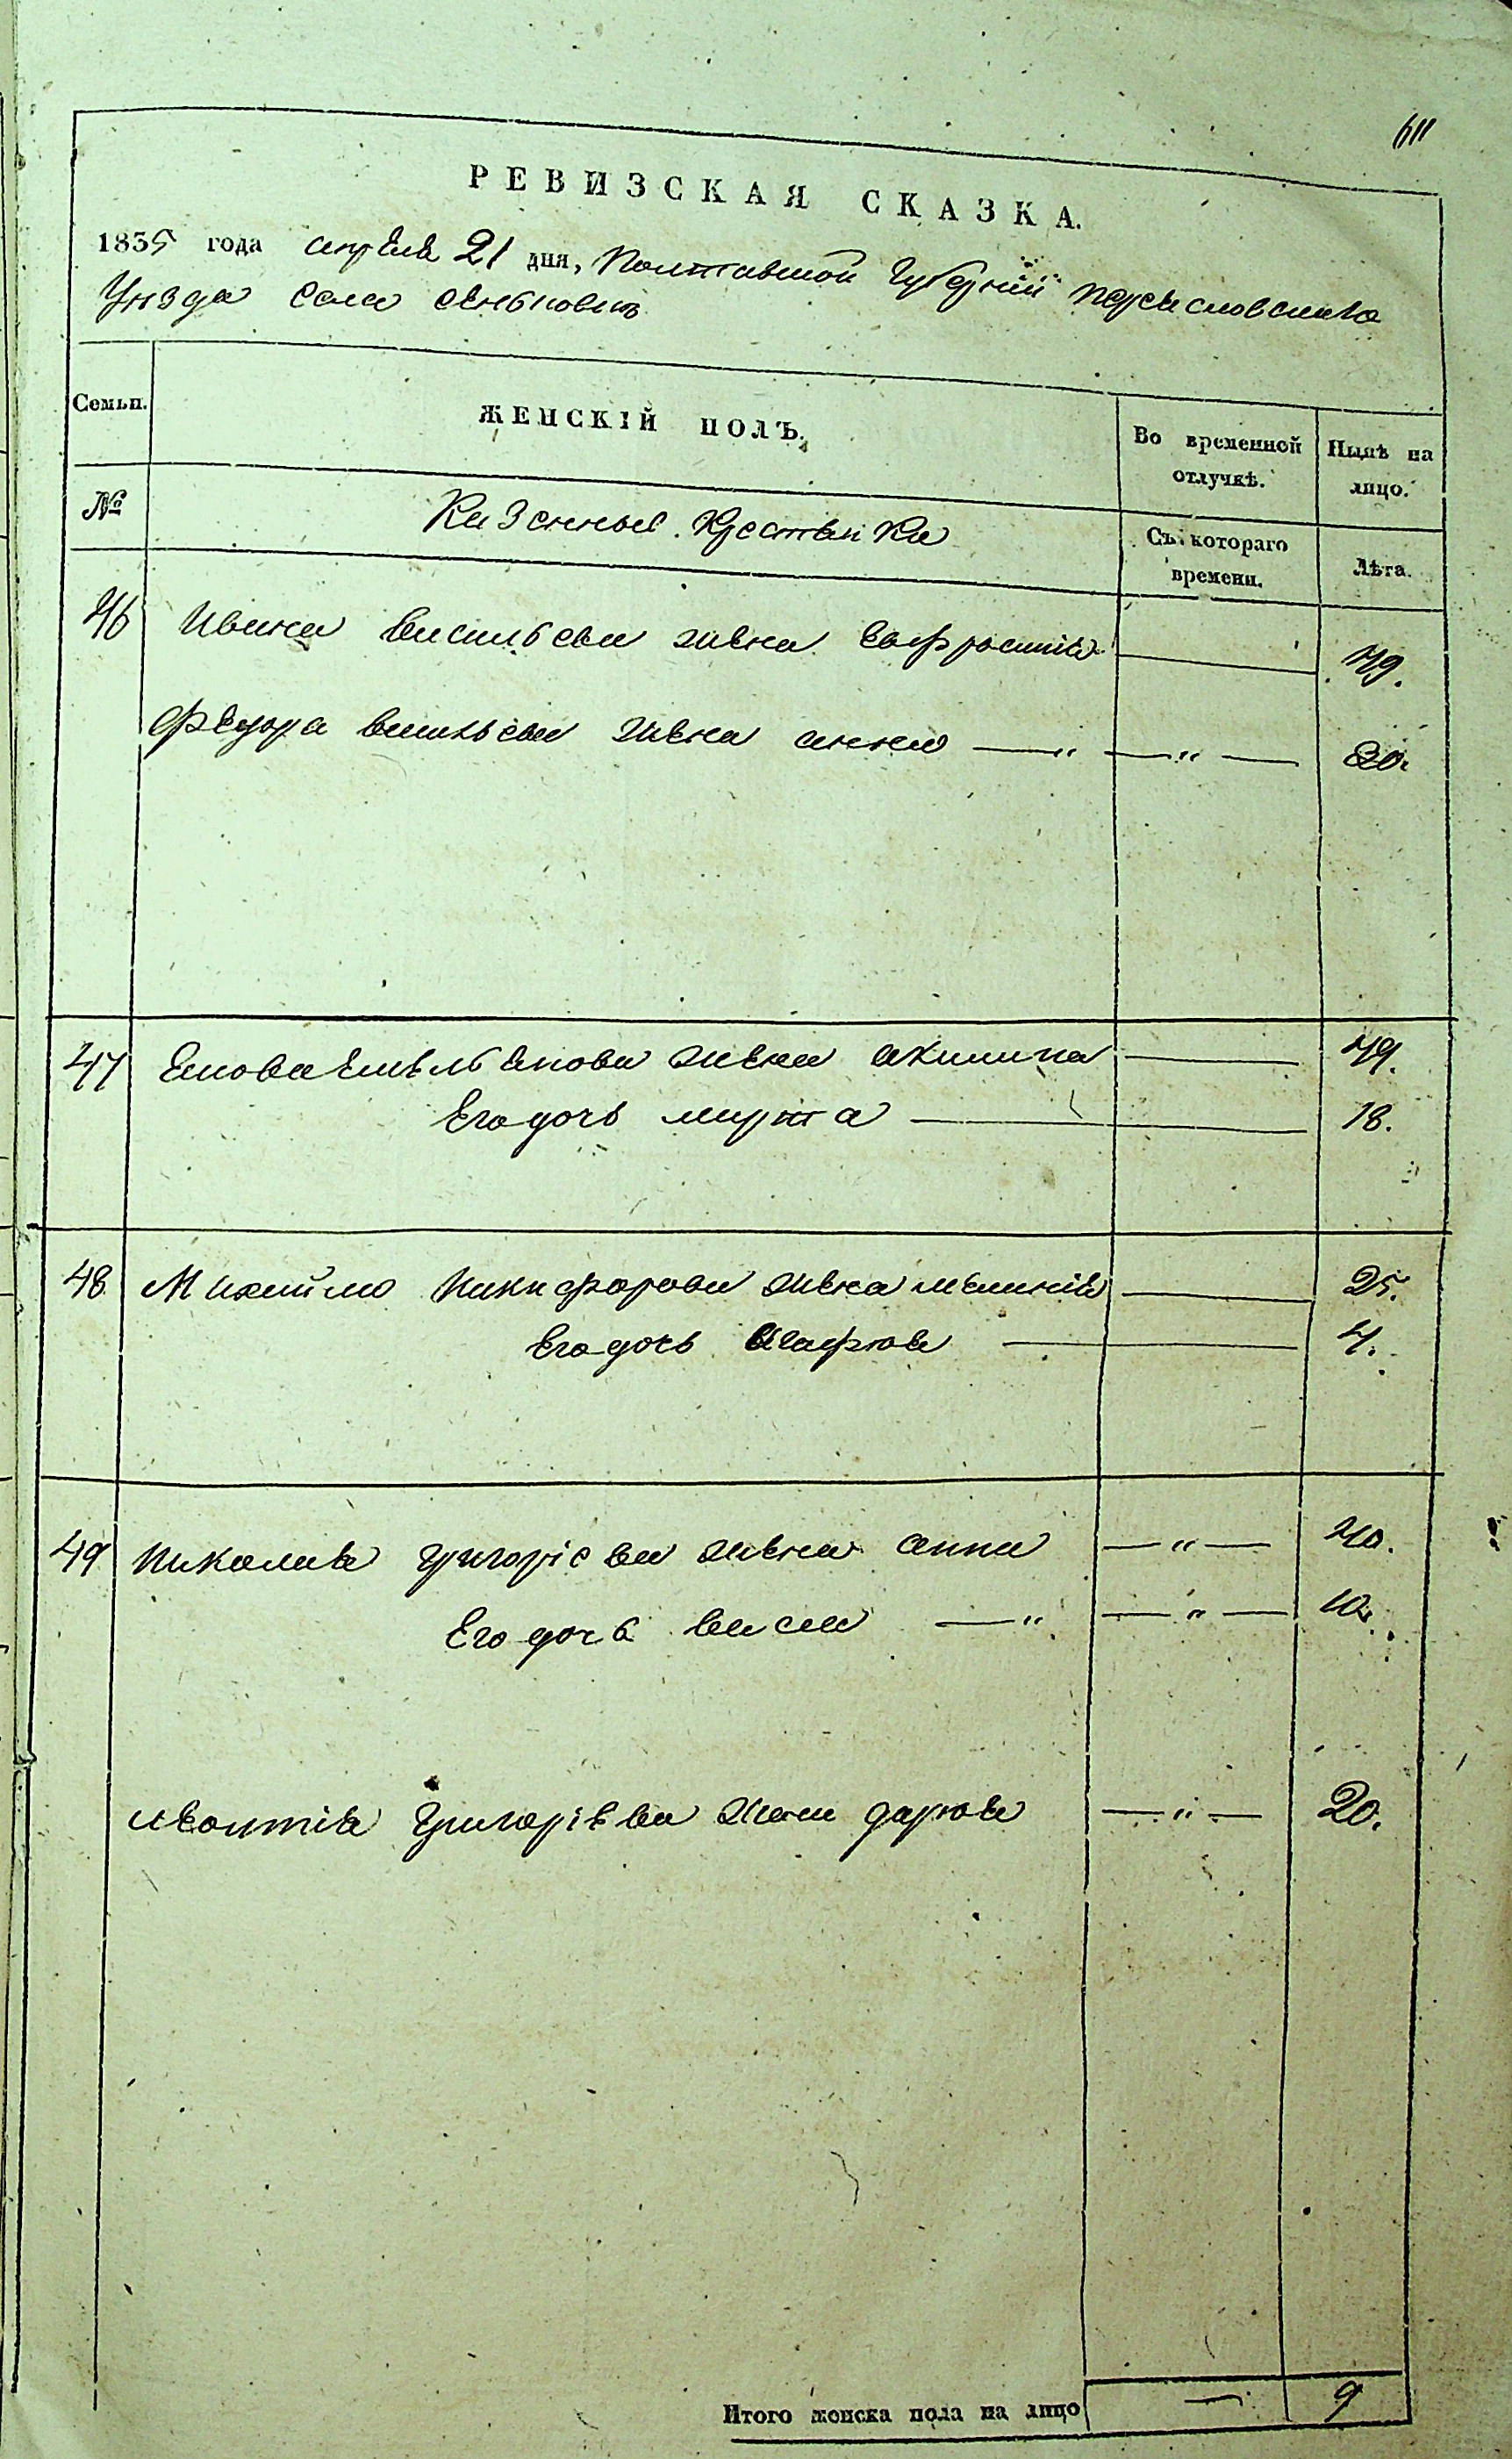 611
РЕВИЗСКАЯ СКАЗКА.
1835 года апреля 21 дня, Полтавской Губернии Переясловскаго
Уезда Села
Семьи. ЖЕНСКІЙ ПОЛЪ. Во временной отлучкѣ. Нынѣ на лицо.
№ Казенные Крестьянки Съ котораго времени. Лѣта.
46 Ивана Васильева жена Евфросинія 49.
Федора Васильева жена Анна — " — " — 30.
47 Емельянова жена Акилина 49.
Его дочь Марта 18.
48 Михайло Никифорова жена Меланія 25.
Его дочь Агафія 4.
49 Николая Григоріева жена Анна — " — 40.
Его дочь Васса — " — " — 10.
Леонтія Григоріева жена Дарія — " — 20.
Итого женска пола на лицо — 9